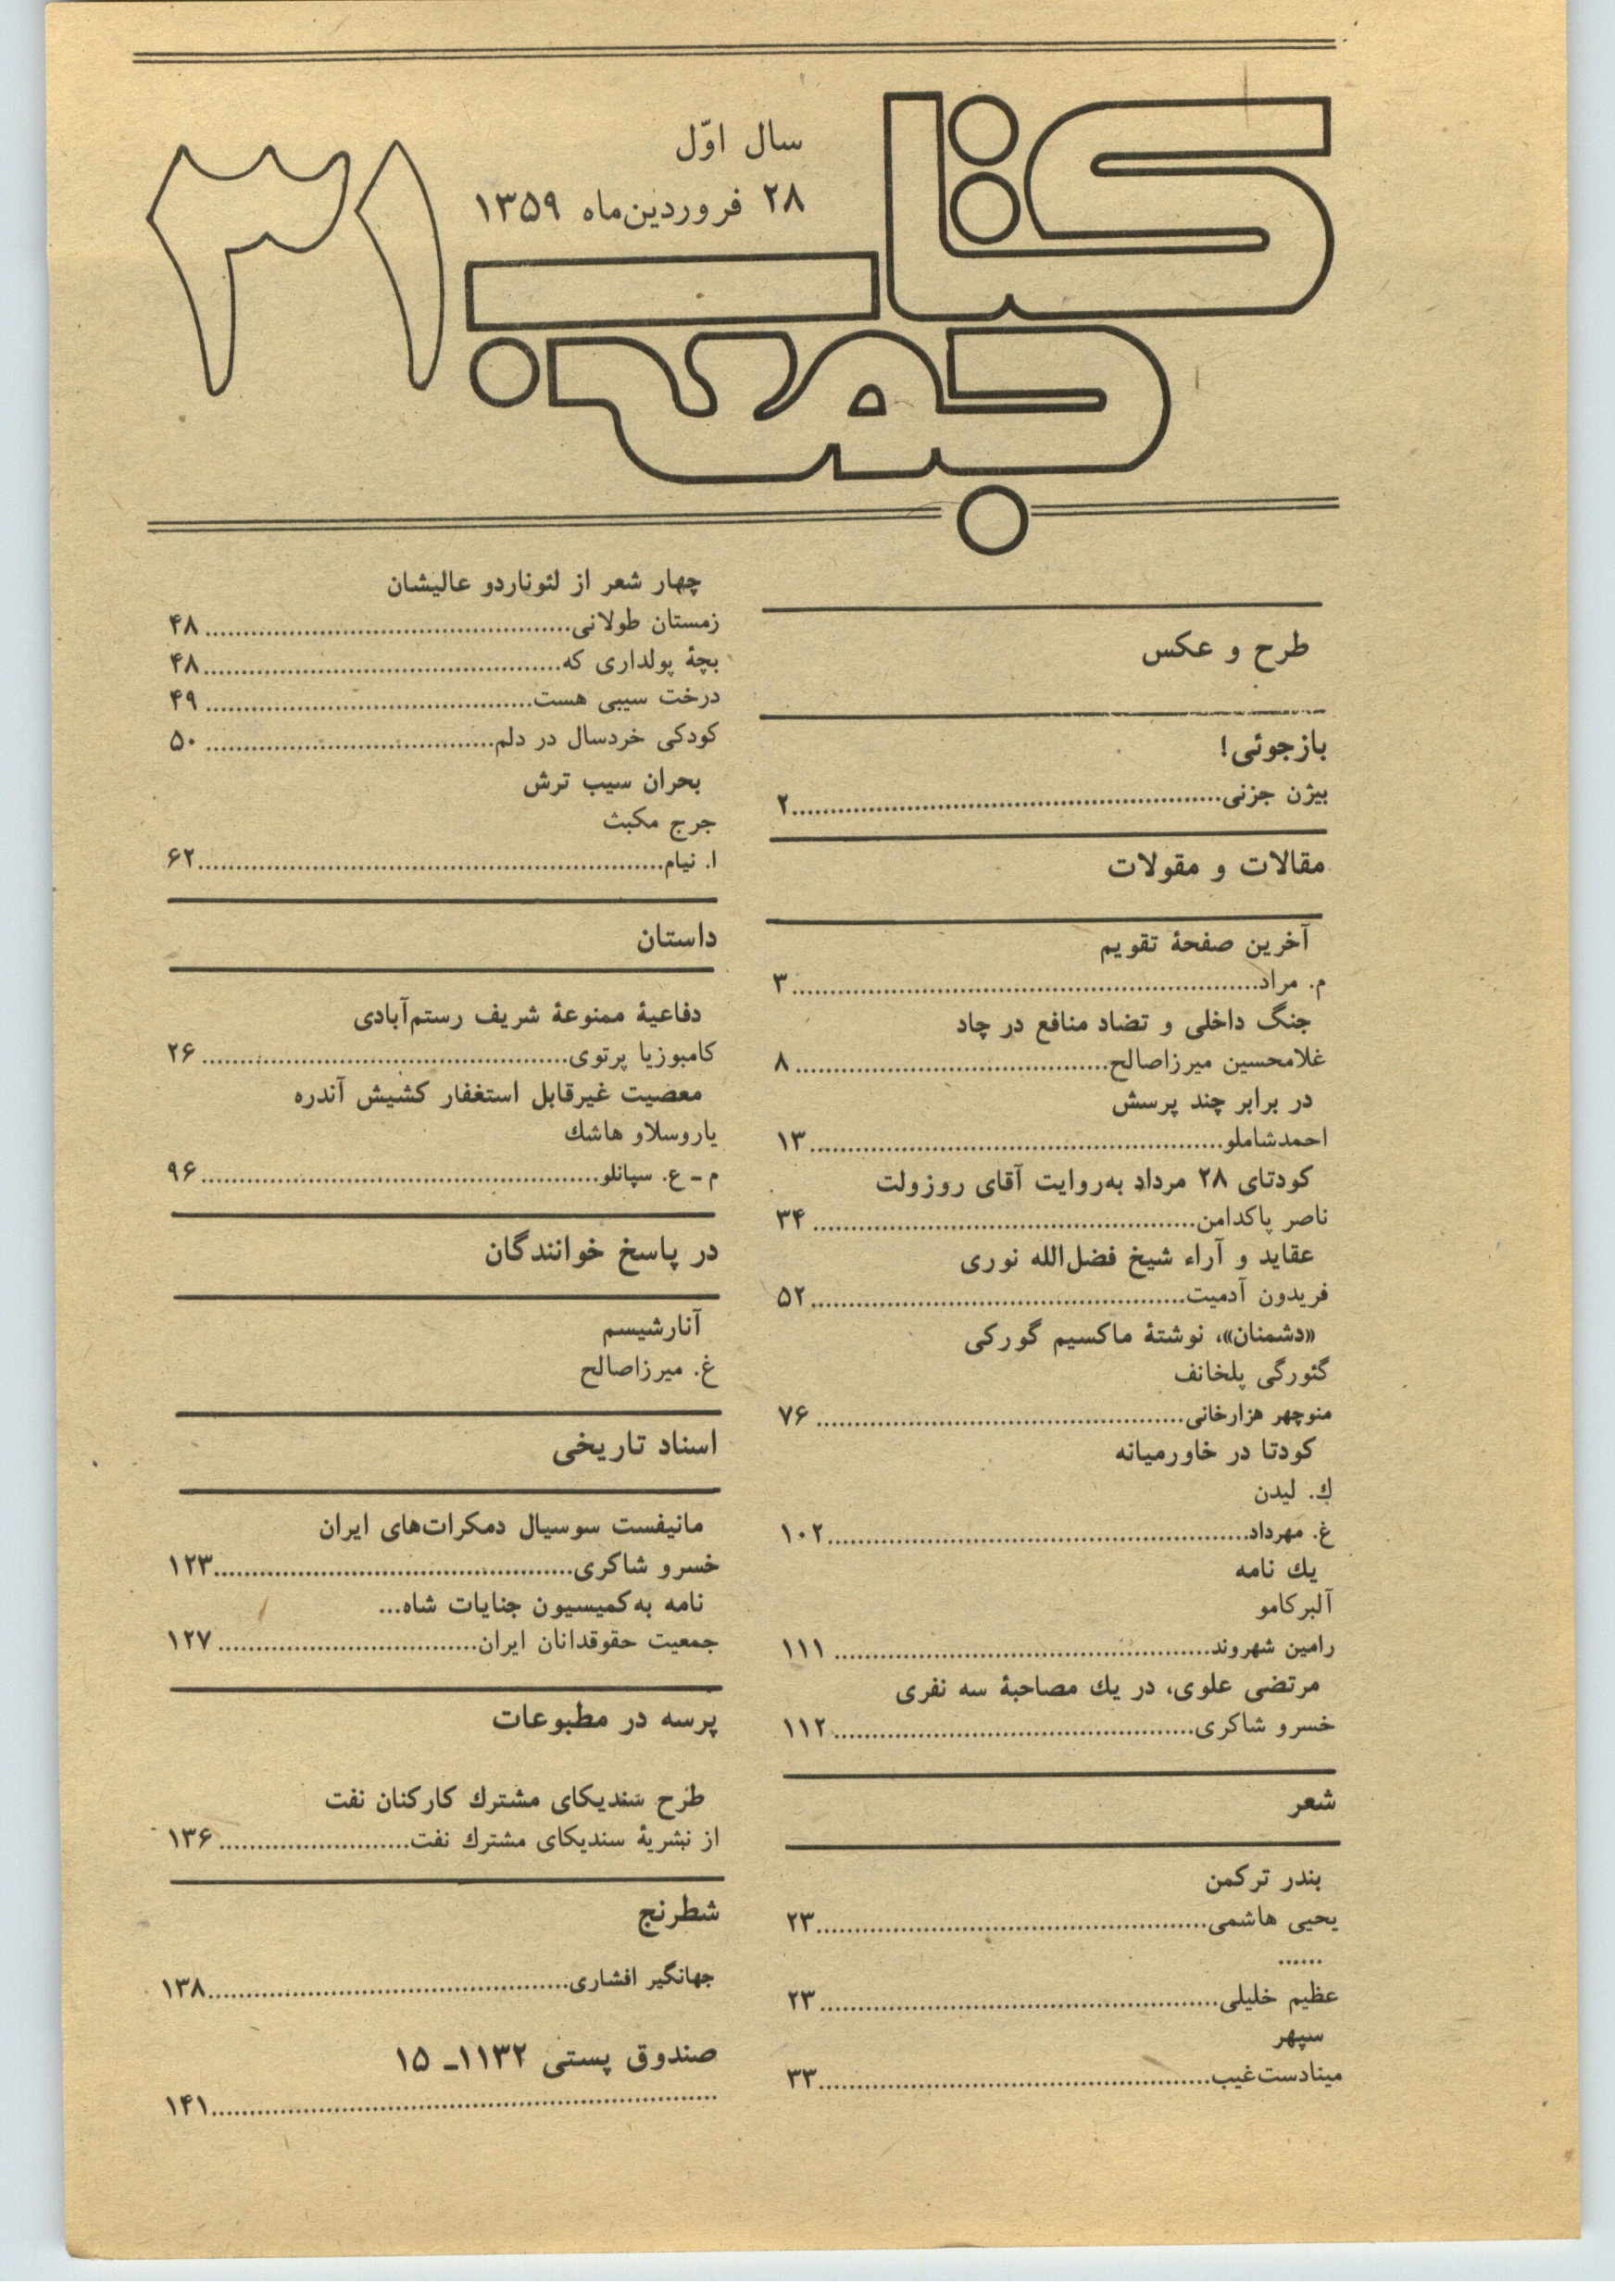 کتاب جمعه
۳۱
سال اوّل
۲۸ فروردین‌ماه ۱۳۵۹
طرح و عکس
بازجوئی!
بیژن جزنی............................................۲
مقالات و مقولات
آخرین صفحهٔ تقویم
م. مراد............................................۳
جنگ داخلی و تضاد منافع در چاد
غلامحسین میرزاصالح............................................۸
در برابر چند پرسش
احمدشاملو............................................۱۳
کودتای ۲۸ مرداد به‌روایت آقای روزولت
ناصر پاکدامن............................................۳۴
عقاید و آراء شیخ فضل‌الله نوری
فریدون آدمیت............................................۵۲
«دشمنان»، نوشتهٔ ماکسیم گورکی
گئورگی پلخانف
منوچهر هزارخانی............................................۷۶
کودتا در خاورمیانه
ك. لیدن
غ. مهرداد............................................۱۰۲
یك نامه
آلبرکامو
رامین شهروند............................................۱۱۱
مرتضی علوی، در یك مصاحبهٔ سه نفری
خسرو شاکری............................................۱۱۲
شعر
بندر ترکمن
یحیی هاشمی............................................۲۳
......
عظیم خلیلی............................................۲۳
سپهر
مینادست‌غیب............................................۳۳
چهار شعر از لئوناردو عالیشان
زمستان طولانی............................................۴۸
بچهٔ پولداری که............................................۴۸
درخت سیبی هست............................................۴۹
کودکی خردسال در دلم............................................۵۰
بحران سیب ترش
جرج مکبث
ا. نیام............................................۶۲
داستان
دفاعیهٔ ممنوعهٔ شریف رستم‌آبادی
کامبوزیا پرتوی............................................۲۶
معصیت غیرقابل استغفار کشیش آندره
یاروسلاو هاشك
م ـ ع. سپانلو............................................۹۶
در پاسخ خوانندگان
آنارشیسم
غ. میرزاصالح
اسناد تاریخی
مانیفست سوسیال دمکرات‌های ایران
خسرو شاکری............................................۱۲۳
نامه به‌کمیسیون جنایات شاه...
جمعیت حقوقدانان ایران............................................۱۲۷
پرسه در مطبوعات
طرح سندیکای مشترك کارکنان نفت
از نشریهٔ سندیکای مشترك نفت............................................۱۳۶
شطرنج
جهانگیر افشاری............................................۱۳۸
صندوق پستی ۱۱۳۲ـ ۱۵
............................................۱۴۱